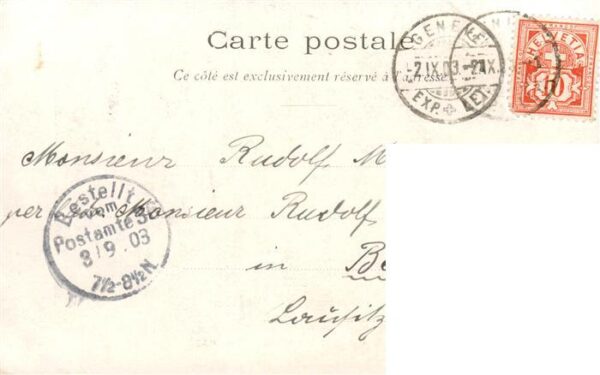 Carte postale
Ce côté est exclusivement réservé à l'adresse
GENÈVE
-2.IX.03.-
EXP. LET.
HELVETIA
10
Monsieur Rudolf M
per Monsieur Rudolf
in Be
Lausitz
Bestellt
vom
Postamte
3/9.03
7½-8½N